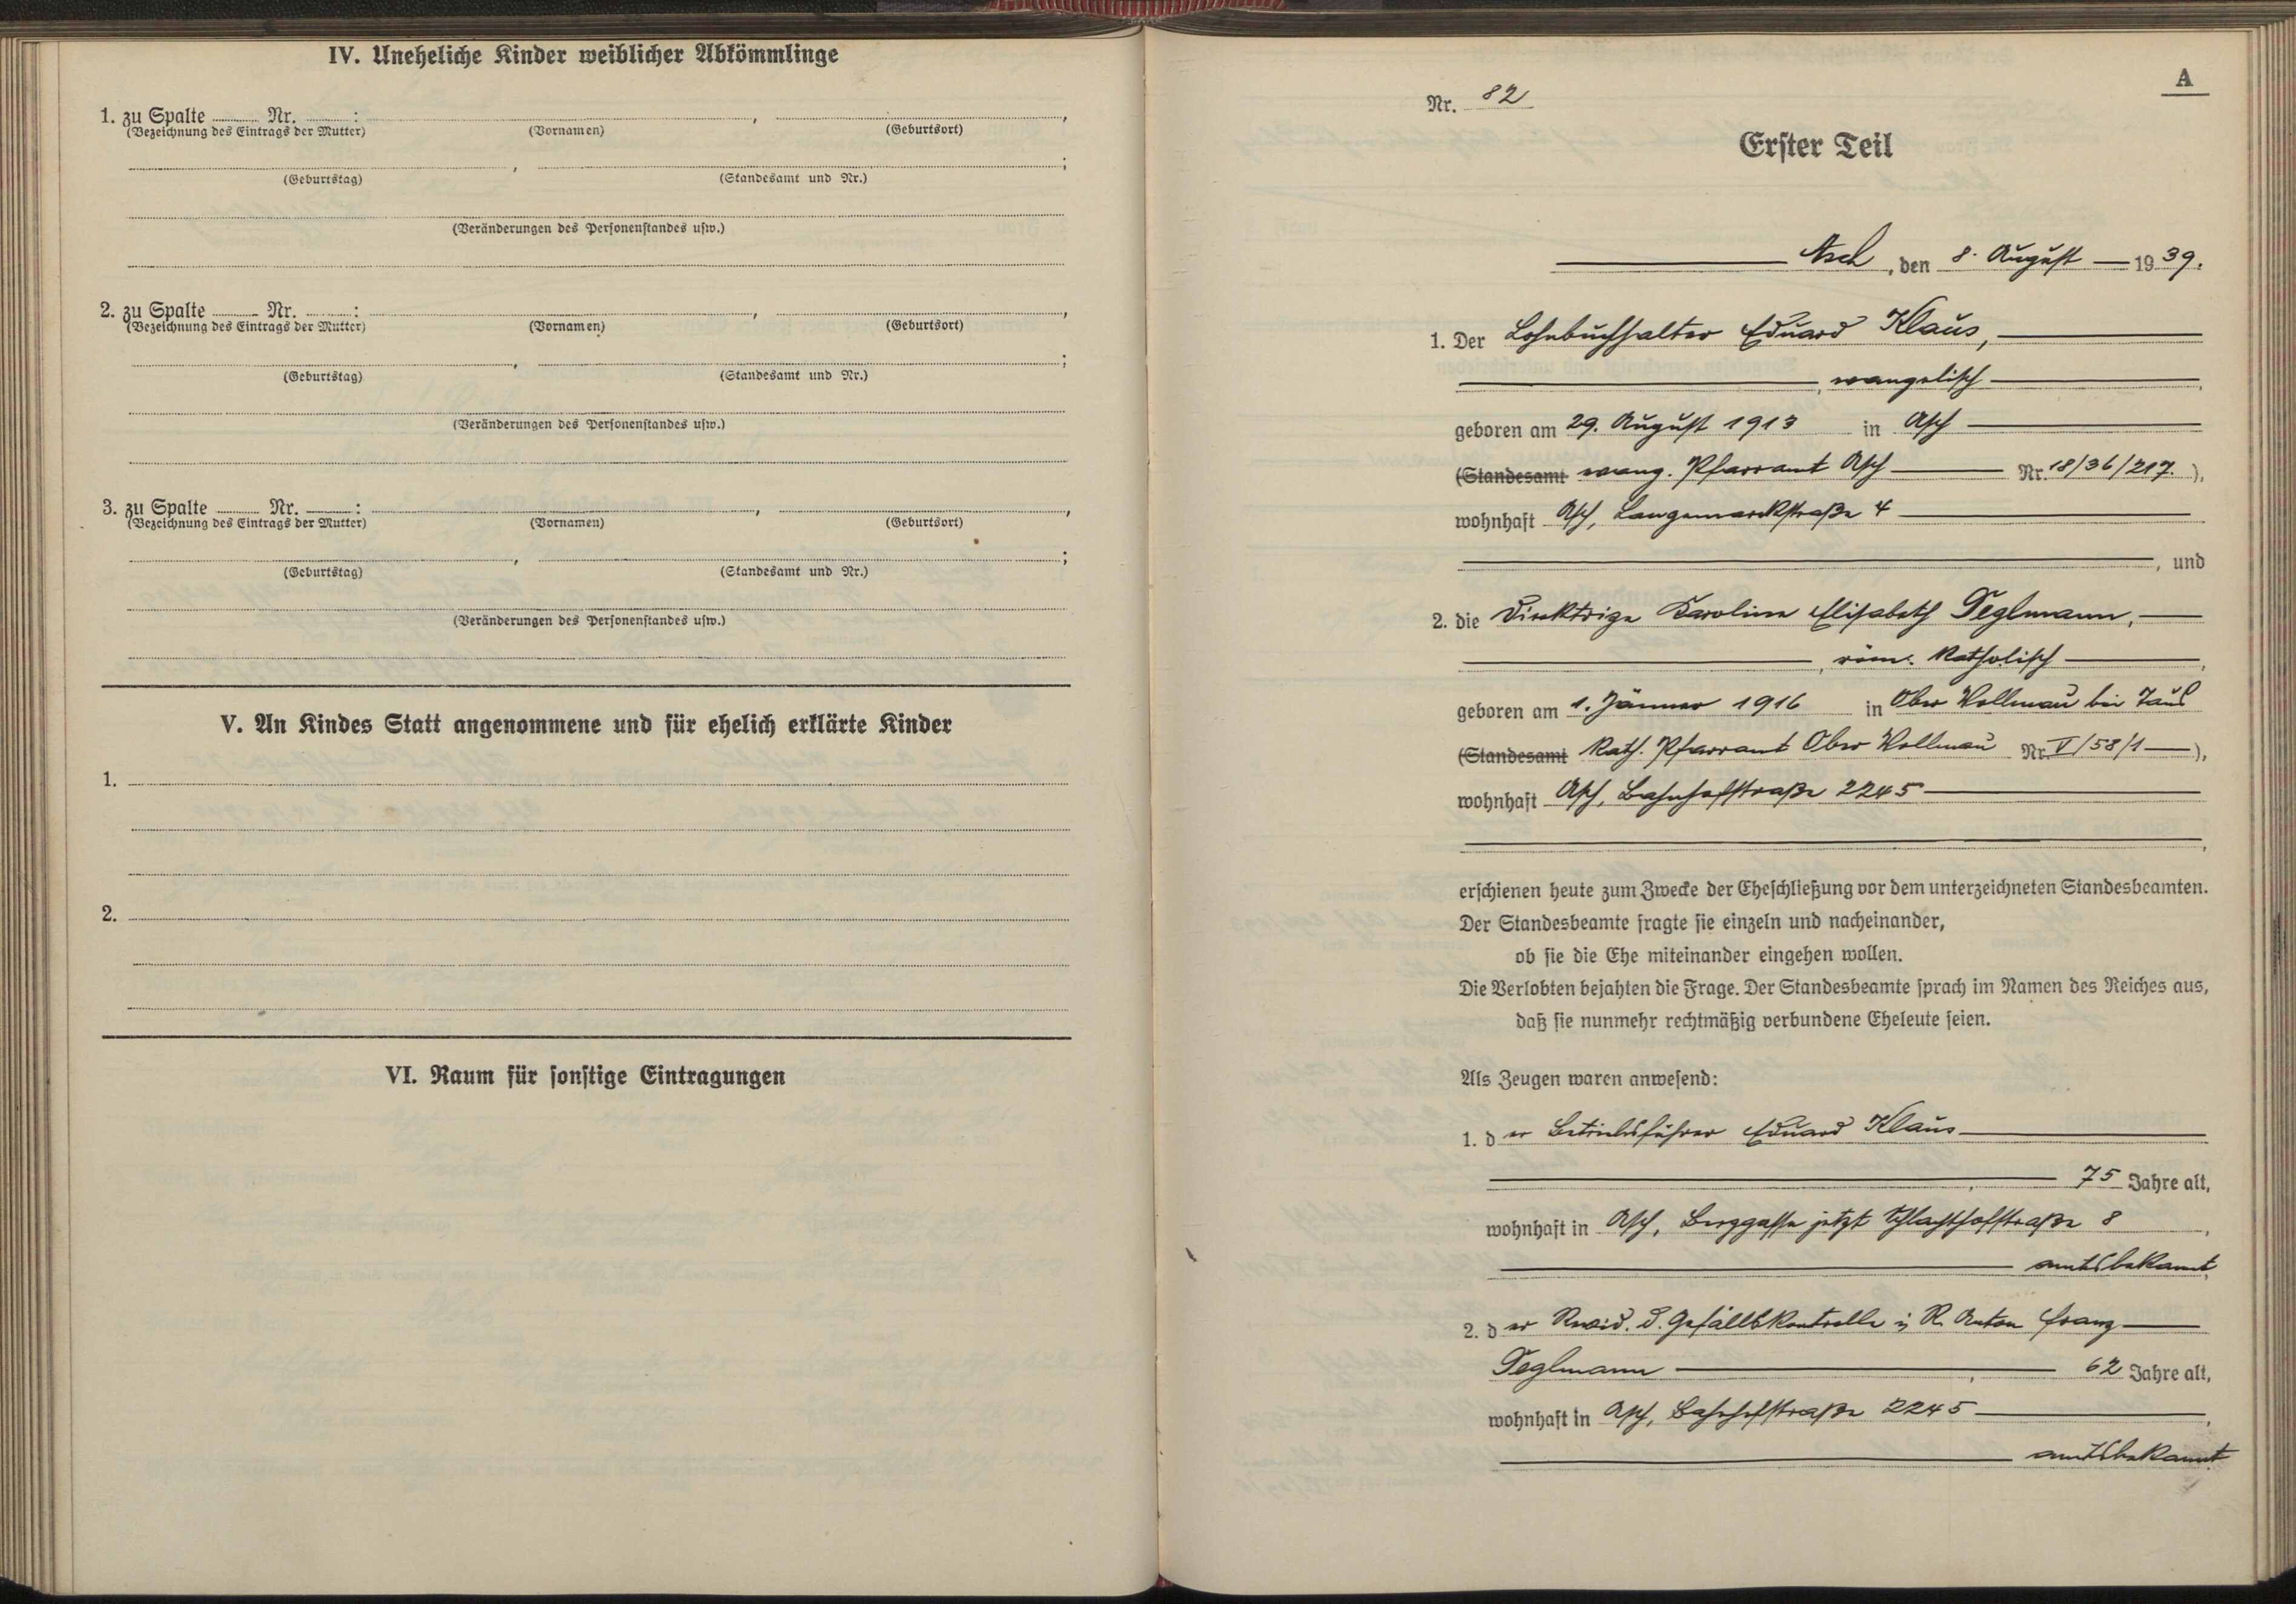 IV. Uneheliche Kinder weiblicher Abkömmlinge
1. zu Spalte ........ Nr. ........ :
(Bezeichnung des Eintrags der Mutter) (Vornamen) (Geburtsort)
(Geburtstag) (Standesamt und Nr.)
(Veränderungen des Personenstandes usw.)
2. zu Spalte ........ Nr. ........ :
(Bezeichnung des Eintrags der Mutter) (Vornamen) (Geburtsort)
(Geburtstag) (Standesamt und Nr.)
(Veränderungen des Personenstandes usw.)
3. zu Spalte ........ Nr. ........ :
(Bezeichnung des Eintrags der Mutter) (Vornamen) (Geburtsort)
(Geburtstag) (Standesamt und Nr.)
(Veränderungen des Personenstandes usw.)
V. An Kindes Statt angenommene und für ehelich erklärte Kinder
1.
2.
VI. Raum für sonstige Eintragungen
A
Nr. 82
Erster Teil
Asch, den 8. August 1939.
1. Der Lohnbuchhalter Eduard Klaus,
, evangelisch
geboren am 29. August 1913 in Asch
(Standesamt evang. Pfarramt Asch Nr. 18/36/217.),
wohnhaft Asch, Langemarckstraße 4
, und
2. die Direktrige Karolina Elisabeth Teglmann,
, röm. katholisch,
geboren am 1. Jänner 1916 in Ober Wollmau bei Taus
(Standesamt Kath. Pfarramt Ober Wollmau Nr. V/58/1),
wohnhaft Asch, Bahnhofstraße 2245
,
erschienen heute zum Zwecke der Eheschließung vor dem unterzeichneten Standesbeamten.
Der Standesbeamte fragte sie einzeln und nacheinander,
ob sie die Ehe miteinander eingehen wollen.
Die Verlobten bejahten die Frage. Der Standesbeamte sprach im Namen des Reiches aus,
daß sie nunmehr rechtmäßig verbundene Eheleute seien.
Als Zeugen waren anwesend:
1. der Betriebsführer Eduard Klaus
, 75 Jahre alt,
wohnhaft in Asch, Berggasse jetzt Schlachthofstraße 8,
amtsbekannt
2. der d. Gefällskontrolle i. R. Anton Franz
Teglmann, 62 Jahre alt,
wohnhaft in Asch, Bahnhofstraße 2245,
amtsbekannt